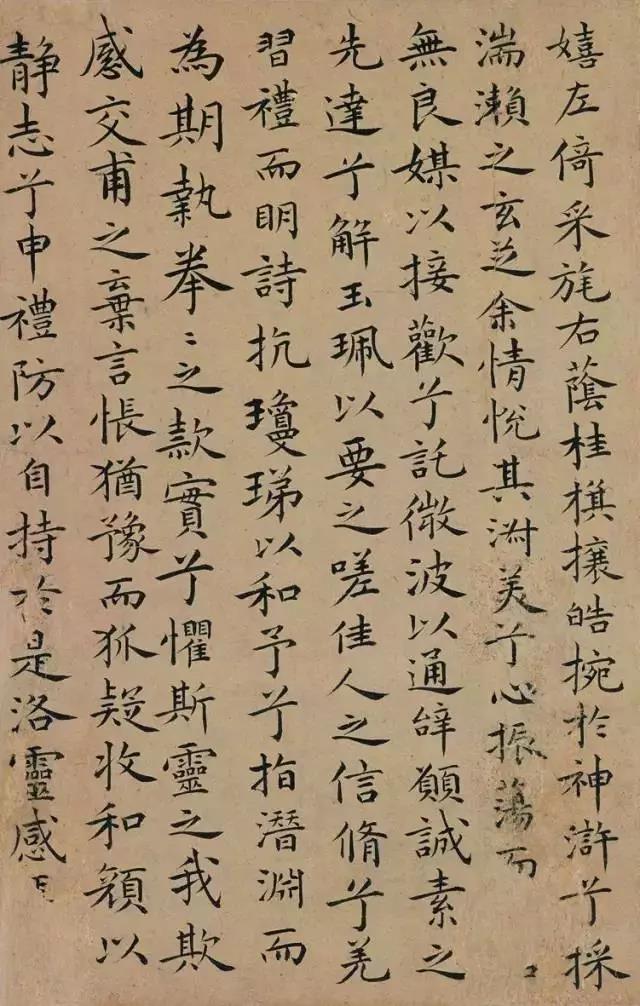 嬉左倚采旄右蔭桂旗攘皓捥於神滸兮採
湍瀨之玄芝余情悅其淑美兮心振蕩而
無良媒以接歡兮託微波以通辭願誠素之
先達兮解玉珮以要之嗟佳人之信脩兮羌
習禮而明詩抗瓊珶以和予兮指潛淵而
為期執拳〻之款實兮懼斯靈之我欺
感交甫之棄言悵猶豫而狐疑收和顏以
靜志兮申禮防以自持於是洛靈感